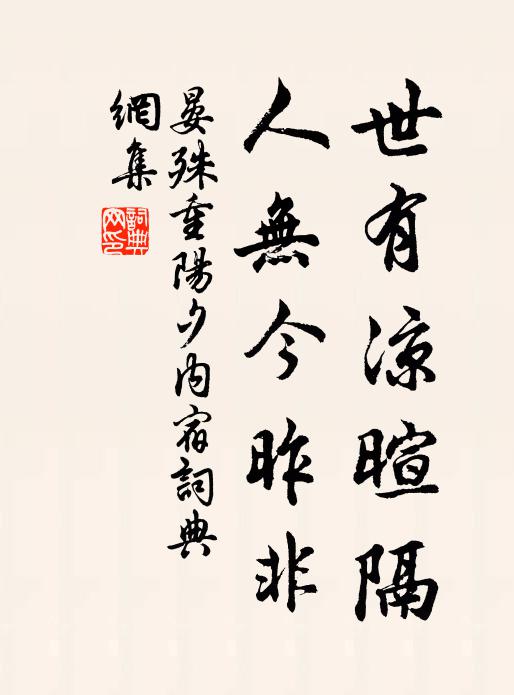 世有涼暄隔
人無今昨非
晏殊重陽夕内宿詞典
網集
詞典
网印